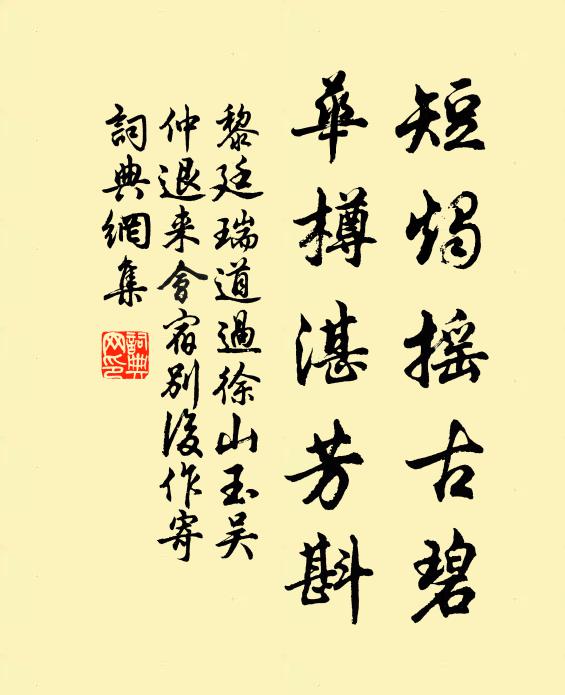 短燭摇古碧
華樽湛芳斟
黎廷瑞道過徐山玉吴
仲退来會宿别後作寄
詞典網集
詞典網印